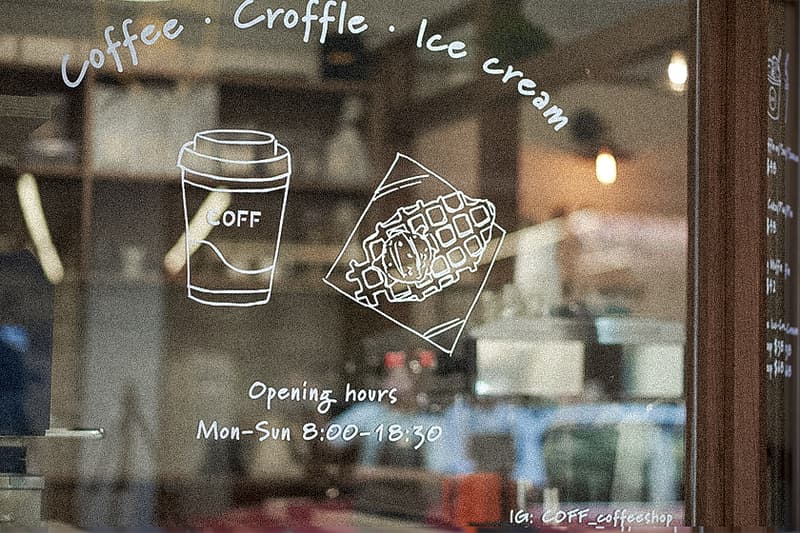 Coffee · Croffle · Ice cream
COFF
Opening hours
Mon-Sun 8:00-18:30
IG: COFF_coffeeshop